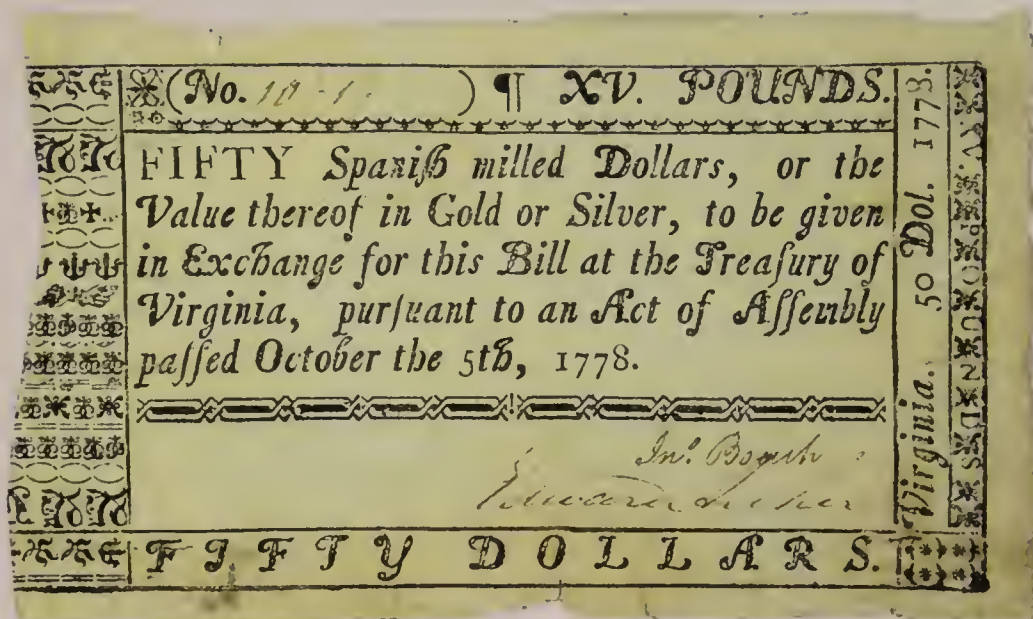 (No. ) ¶ XV. POUNDS.
FIFTY Spaniſh milled Dollars, or the
Value thereof in Gold or Silver, to be given
in Exchange for this Bill at the Treaſury of
Virginia, purſuant to an Act of Aſſembly
paſſed October the 5th, 1778.
Jnº.
FIFTY DOLLARS.
Virginia. 50 Dol. 1778.